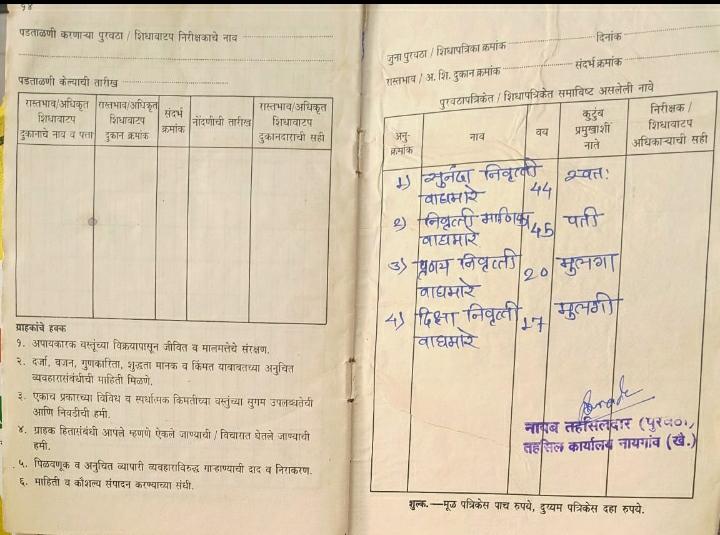 १४
पडताळणी करणाऱ्या पुरवठा / शिधावाटप निरीक्षकाचे नाव
पडताळणी केल्याची तारीख
रास्तभाव/अधिकृत शिधावाटप दुकानाचे नाव व पत्ता
रास्तभाव/अधिकृत शिधावाटप दुकान क्रमांक
संदर्भ क्रमांक
नोंदणीची तारीख
रास्तभाव/अधिकृत शिधावाटप दुकानदाराची सही
ग्राहकांचे हक्क
१. अपायकारक वस्तूंच्या विक्रयापासून जीवित व मालमत्तेचे संरक्षण.
२. दर्जा, वजन, गुणकारिता, शुद्धता मानक व किंमत याबाबतच्या अनुचित
व्यवहारासंबंधीची माहिती मिळणे.
३. एकाच प्रकारच्या विविध व स्पर्धात्मक किमतीच्या वस्तूंच्या सुगम उपलब्धतेची
आणि निवडीची हमी.
४. ग्राहक हितासंबंधी आपले म्हणणे ऐकले जाण्याची / विचारात घेतले जाण्याची
हमी.
५. पिळवणूक व अनुचित व्यापारी व्यवहाराविरुद्ध गाऱ्हाण्याची दाद व निराकरण.
६. माहिती व कौशल्य संपादन करण्याच्या संधी.
जुना पुरवठा / शिधापत्रिका क्रमांक दिनांक
रास्तभाव / अ. शि. दुकान क्रमांक संदर्भ क्रमांक
पुरवठापत्रिकेत / शिधापत्रिकेत समाविष्ट असलेली नावे
अनु- क्रमांक
नाव
वय
कुटुंब प्रमुखाशी नाते
निरीक्षक / शिधावाटप अधिकाऱ्याची सही
1) सुनंदा निवृत्ती वाघमारे 44 स्वतः
2) निवृत्ती माणिका वाघमारे 45 पती
3) प्रणय निवृत्ती वाघमारे 20 मुलगा
4) दिक्षा निवृत्ती वाघमारे 17 मुलगी
नायब तहसिलदार (पुरवठा)
तहसिल कार्यालय नायगांव (खै.)
शुल्क.—मूळ पत्रिकेस पाच रुपये, दुय्यम पत्रिकेस दहा रुपये.